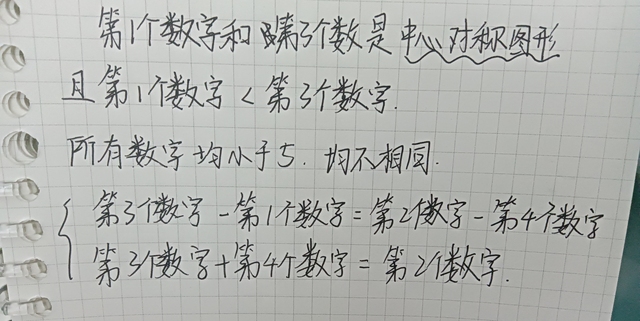 第1个数字和第3个数是中心对称图形
且第1个数字<第3个数字.
所有数字均小于5.均不相同.
第3个数字-第1个数字=第2个数字-第4个数字
第3个数字+第4个数字=第2个数字.